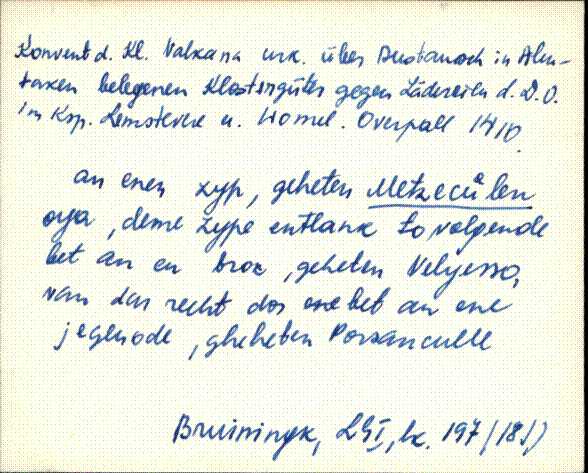 Konvent d. Kl. Valkana urk. über Austausch in Alen-
taken belegenen Klostergüter gegen Ländereien d. D. O.
im Ksp. Lemstevere u. Womel. Overpall 1410.
an enen zyp, geheten Metzecůlen
oya, deme zype entlank to volgende
bet an en brok, geheten Velyesso,
van dar recht dor ene bet an ene
jegenode, gheheten Porzanculle
Bruiningk, LGI, lk. 197 (181)